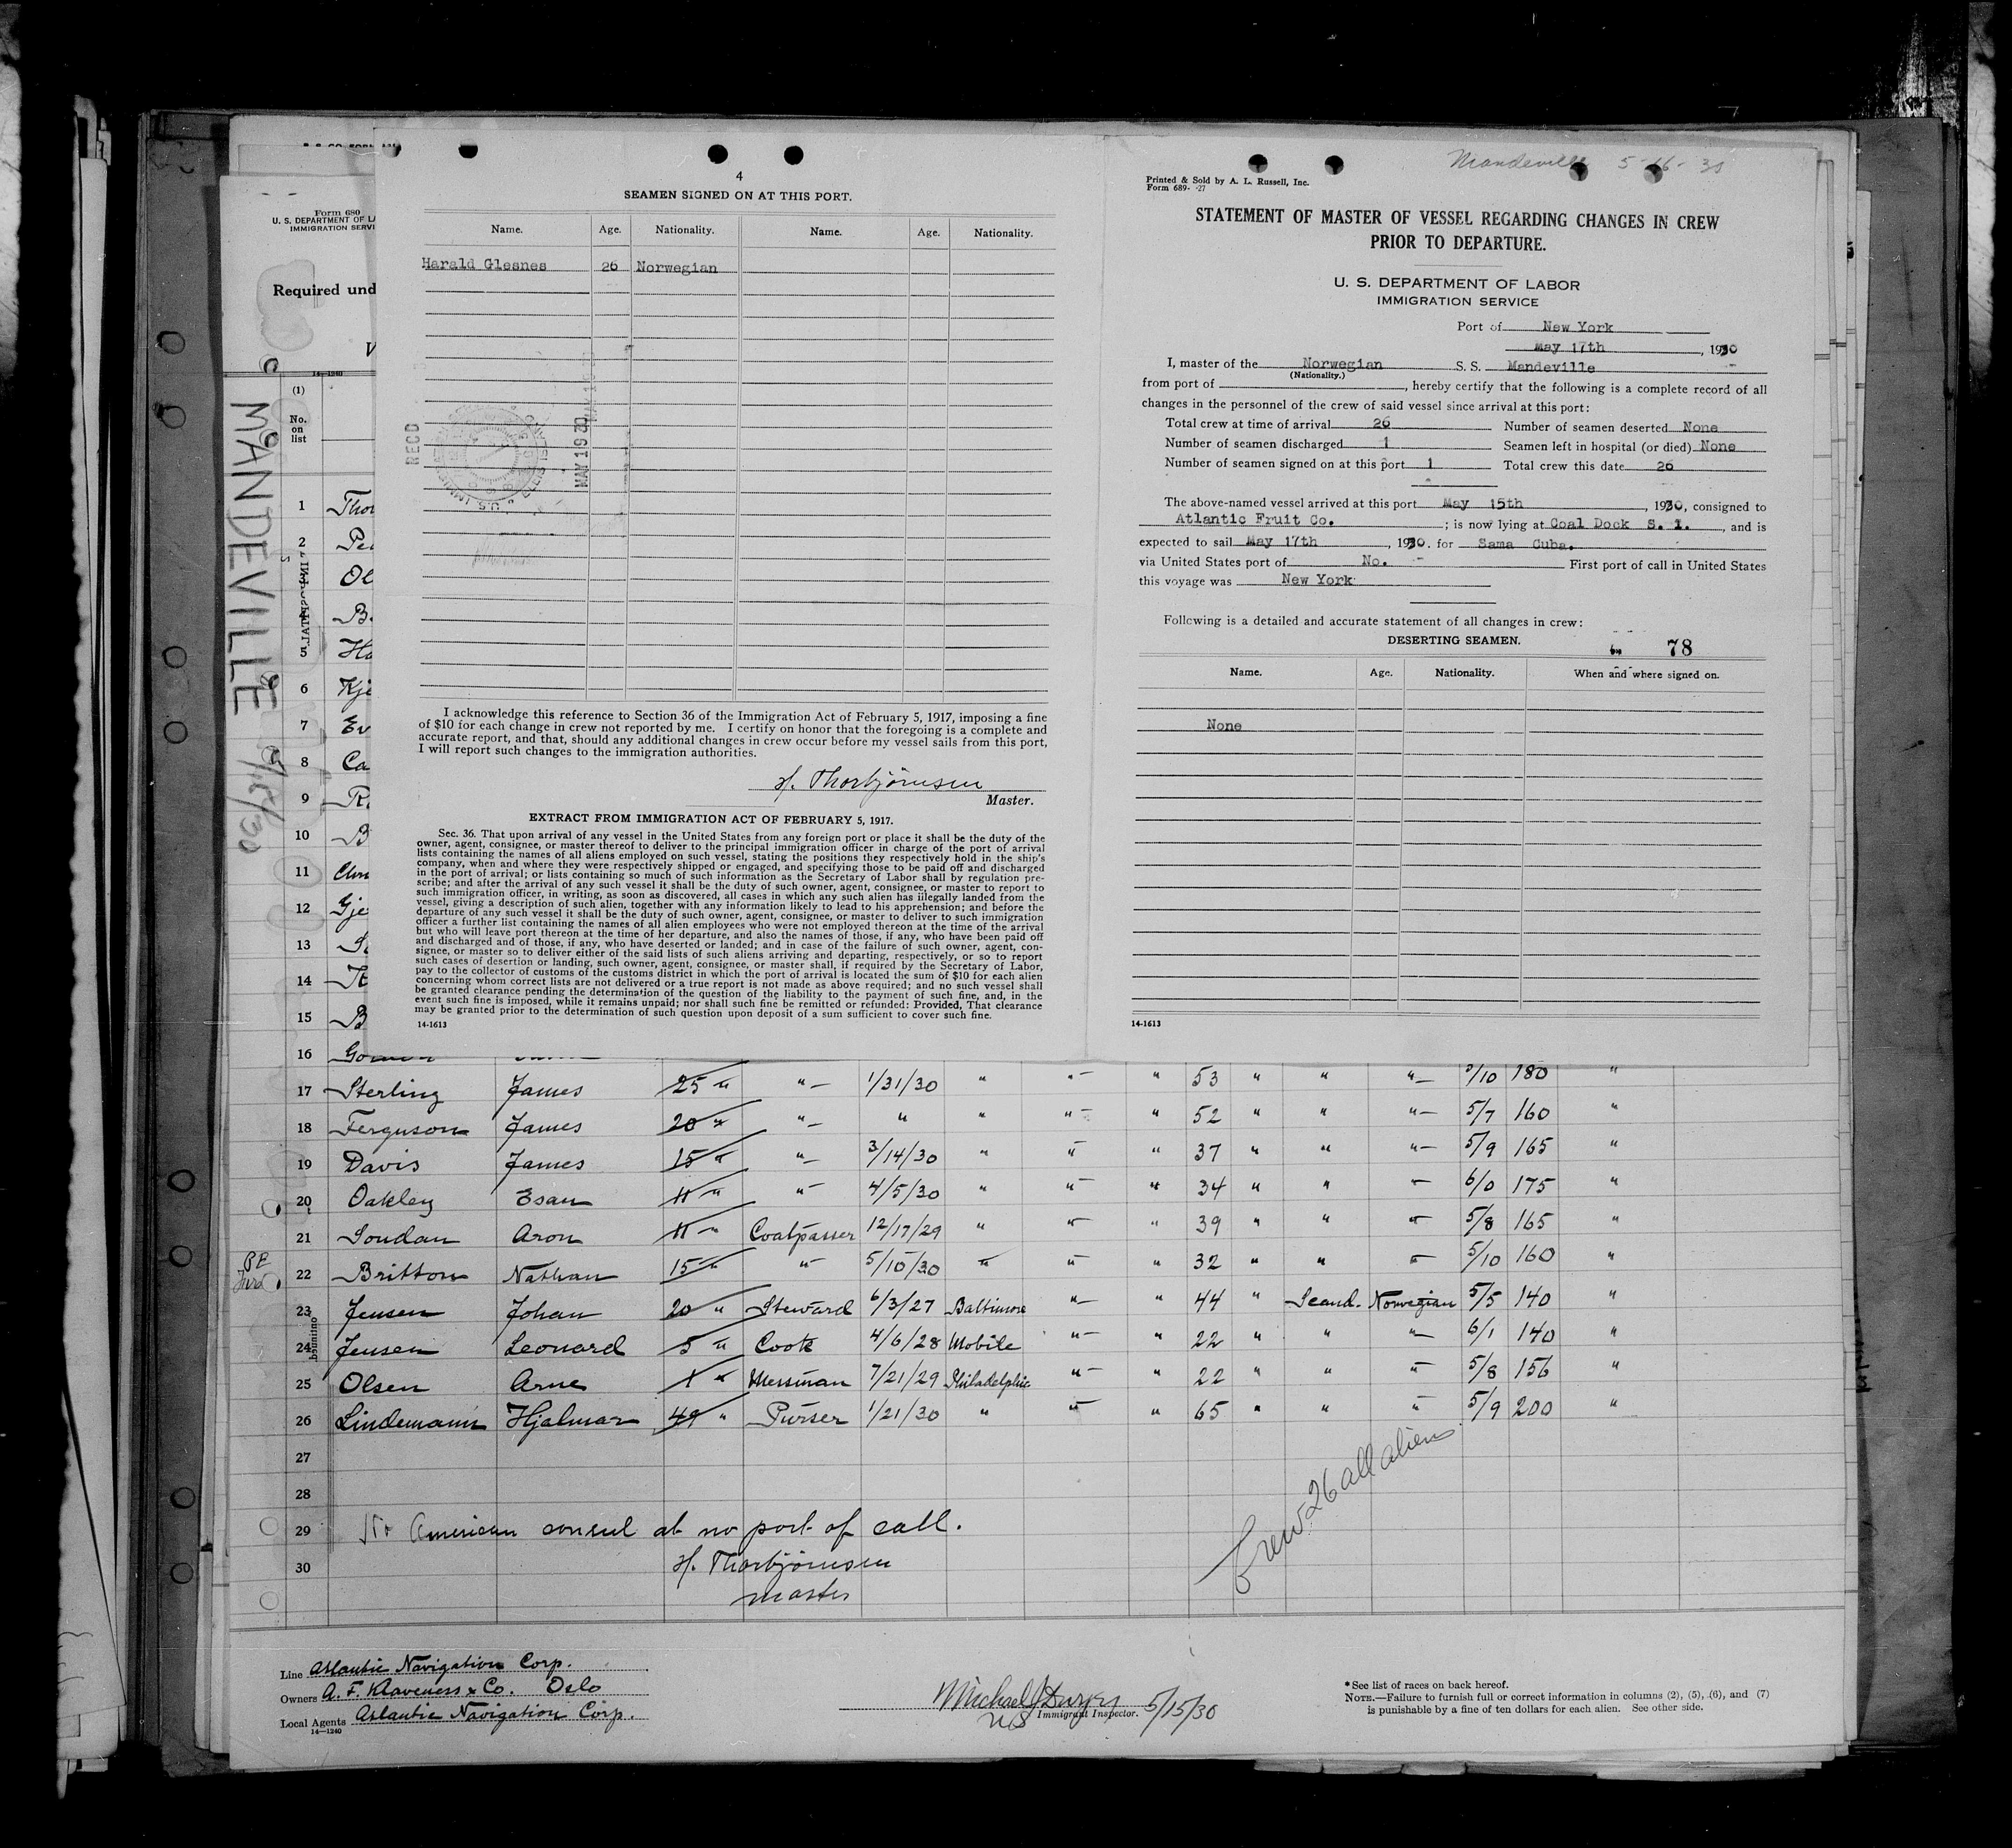 4
SEAMEN SIGNED ON AT THIS PORT.
Name. Age. Nationality. Name. Age. Nationality.
Harald Glesnes 26 Norwegian
RECD
MAY 19 30
I acknowledge this reference to Section 36 of the Immigration Act of February 5, 1917, imposing a fine
of $10 for each change in crew not reported by me. I certify on honor that the foregoing is a complete and
accurate report, and that, should any additional changes in crew occur before my vessel sails from this port,
I will report such changes to the immigration authorities.
H. Thorbjørnsen
Master.
EXTRACT FROM IMMIGRATION ACT OF FEBRUARY 5, 1917.
Sec. 36. That upon arrival of any vessel in the United States from any foreign port or place it shall be the duty of the
owner, agent, consignee, or master thereof to deliver to the principal immigration officer in charge of the port of arrival
lists containing the names of all aliens employed on such vessel, stating the positions they respectively hold in the ship's
company, when and where they were respectively shipped or engaged, and specifying those to be paid off and discharged
in the port of arrival; or lists containing so much of such information as the Secretary of Labor shall by regulation pre-
scribe; and after the arrival of any such vessel it shall be the duty of such owner, agent, consignee, or master to report to
such immigration officer, in writing, as soon as discovered, all cases in which any such alien has illegally landed from the
vessel, giving a description of such alien, together with any information likely to lead to his apprehension; and before the
departure of any such vessel it shall be the duty of such owner, agent, consignee, or master to deliver to such immigration
officer a further list containing the names of all alien employees who were not employed thereon at the time of the arrival
but who will leave port thereon at the time of her departure, and also the names of those, if any, who have been paid off
and discharged and of those, if any, who have deserted or landed; and in case of the failure of such owner, agent, con-
signee, or master so to deliver either of the said lists of such aliens arriving and departing, respectively, or so to report
such cases of desertion or landing, such owner, agent, consignee, or master shall, if required by the Secretary of Labor,
pay to the collector of customs of the customs district in which the port of arrival is located the sum of $10 for each alien
concerning whom correct lists are not delivered or a true report is not made as above required; and no such vessel shall
be granted clearance pending the determination of the question of the liability to the payment of such fine, and, in the
event such fine is imposed, while it remains unpaid; nor shall such fine be remitted or refunded: Provided, That clearance
may be granted prior to the determination of such question upon deposit of a sum sufficient to cover such fine.
14-1613
Mandeville 5-16-30
Printed & Sold by A. L. Russell, Inc.
Form 689- -27
STATEMENT OF MASTER OF VESSEL REGARDING CHANGES IN CREW
PRIOR TO DEPARTURE.
U. S. DEPARTMENT OF LABOR
IMMIGRATION SERVICE
Port of New York
May 17th, 1930
I, master of the Norwegian S. S. Mandeville
(Nationality.)
from port of , hereby certify that the following is a complete record of all
changes in the personnel of the crew of said vessel since arrival at this port:
Total crew at time of arrival 26 Number of seamen deserted None
Number of seamen discharged 1 Seamen left in hospital (or died) None
Number of seamen signed on at this port 1 Total crew this date 26
The above-named vessel arrived at this port May 15th, 1930, consigned to
Atlantic Fruit Co. ; is now lying at Coal Dock S. I. , and is
expected to sail May 17th, 1930. for Sama Cuba.
via United States port of No. First port of call in United States
this voyage was New York
Following is a detailed and accurate statement of all changes in crew:
DESERTING SEAMEN.
78
Name. Age. Nationality. When and where signed on.
None
14-1613
Form 680
U. S. DEPARTMENT OF LA
IMMIGRATION SERVI
Required und
V
14-1240
(1)
No.
on
list
MANDEVILLE 5/15/30
1 Tho
2 Pe
Ol
4 B
5 Ha
6 Kje
7 Ev
8 Ca
9 R
10 B
11 Chri
12 Gje
13 S
14 H
15 B
16 Gordon
17 Sterling James 25 " " 1/31/30 " " " 53 " " " 5/10 180 "
18 Ferguson James 20 " " " " " " 52 " " " 5/7 160 "
19 Davis James 15 " " 3/14/30 " " " 37 " " " 5/9 165 "
20 Oakley Esau 11 " " 4/5/30 " " " 34 " " " 6/0 175 "
21 Soudan Aron 11 " Coalpasser 12/17/29 " " " 39 " " " 5/8 165 "
22 Britton Nathan 15 " " 5/10/30 " " " 32 " " " 5/10 160 "
23 Jensen Johan 20 " Steward 6/3/27 Baltimore " " 44 " Scand. Norwegian 5/5 140 "
24 Jensen Leonard 5 " Cook 4/6/28 Mobile " " 22 " " " 6/1 140 "
25 Olsen Arne 1 " Messman 7/21/29 Philadelphia " " 22 " " " 5/8 156 "
26 Lindemann Hjalmar 49 " Purser 1/21/30 " " " 65 " " " 5/9 200 "
27
28
29 No American consul at no port of call.
30 H. Thorbjørnsen
master
Crew 26 all alien
Line Atlantic Navigation Corp.
Owners A. F. Klaveness & Co. Oslo
Local Agents Atlantic Navigation Corp.
14-1240
Michael J Dwyer 5/15/30
Immigrant Inspector.
*See list of races on back hereof.
NOTE.—Failure to furnish full or correct information in columns (2), (5), (6), and (7)
is punishable by a fine of ten dollars for each alien. See other side.